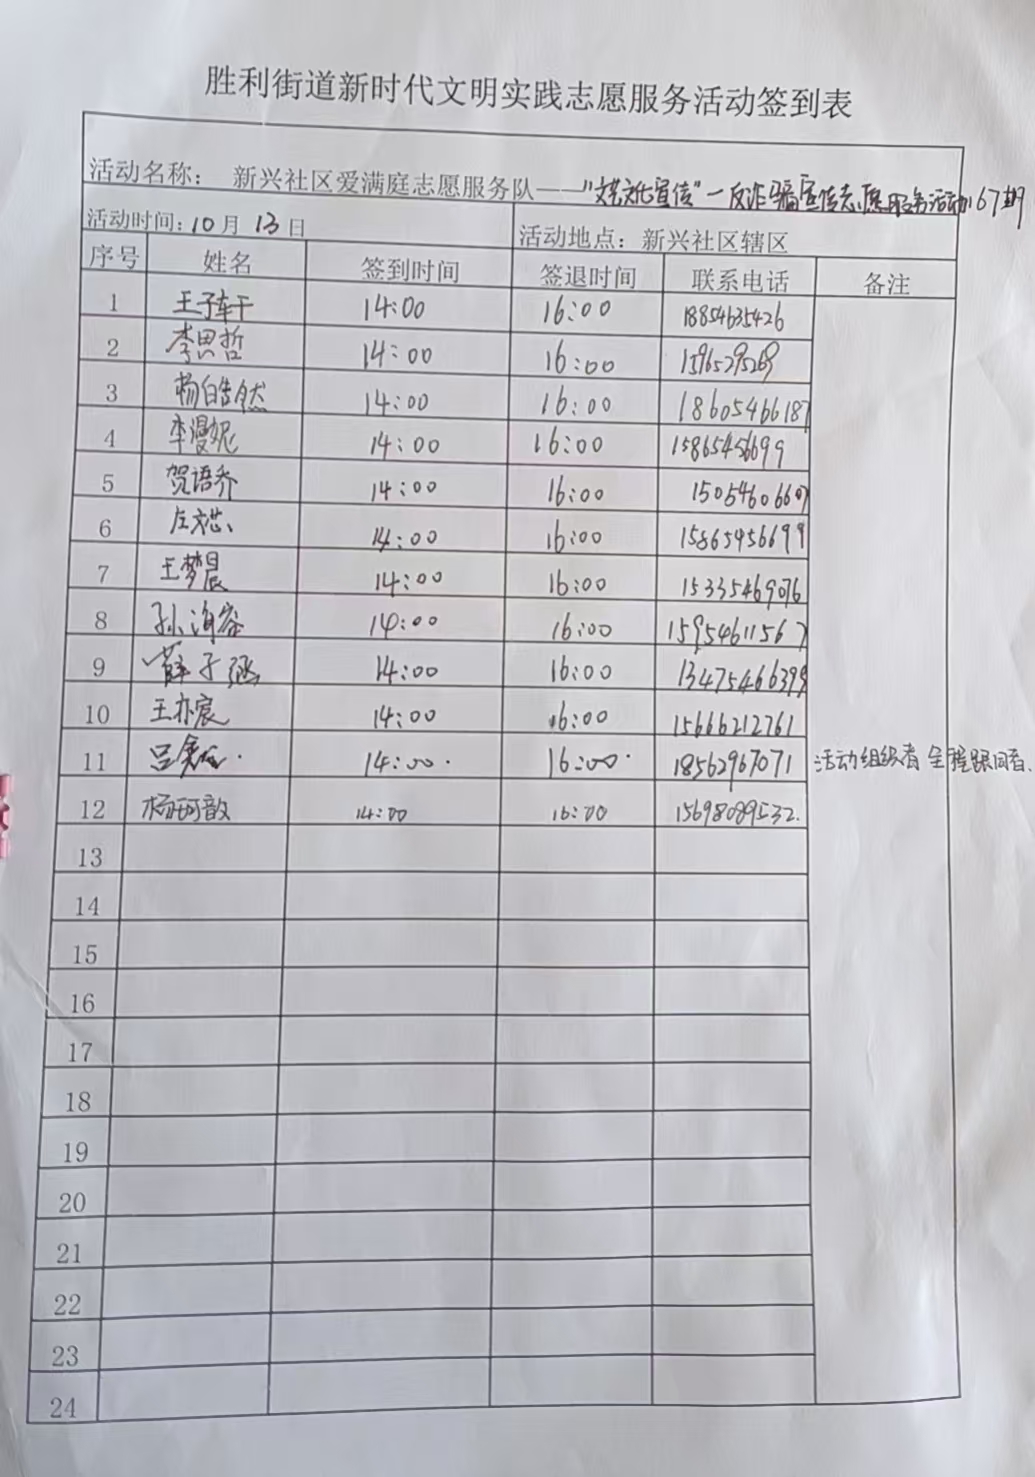 胜利街道新时代文明实践志愿服务活动签到表
活动名称： 新兴社区爱满庭志愿服务队——“文艺文化宣传”—反诈骗宣传志愿服务活动167期
活动时间：10月13日 活动地点：新兴社区辖区
序号 姓名 签到时间 签退时间 联系电话 备注
1 王子轩 14:00 16:00 18854635426
2 李思哲 14:00 16:00 15965295269
3 杨皓然 14:00 16:00 18605466187
4 李漫妮 14:00 16:00 15865456699
5 贺语乔 14:00 16:00 15054606607
6 左文芯 14:00 16:00 15865456699
7 王梦晨 14:00 16:00 15335469076
8 孙海容 14:00 16:00 15954611567
9 薛子涵 14:00 16:00 13475466399
10 王亦宸 14:00 16:00 15666212761
11 吕 14:00 16:00 18562967071 活动组织者 全程跟同者.
12 杨珂歆 14:00 16:00 15698089532.
13
14
15
16
17
18
19
20
21
22
23
24